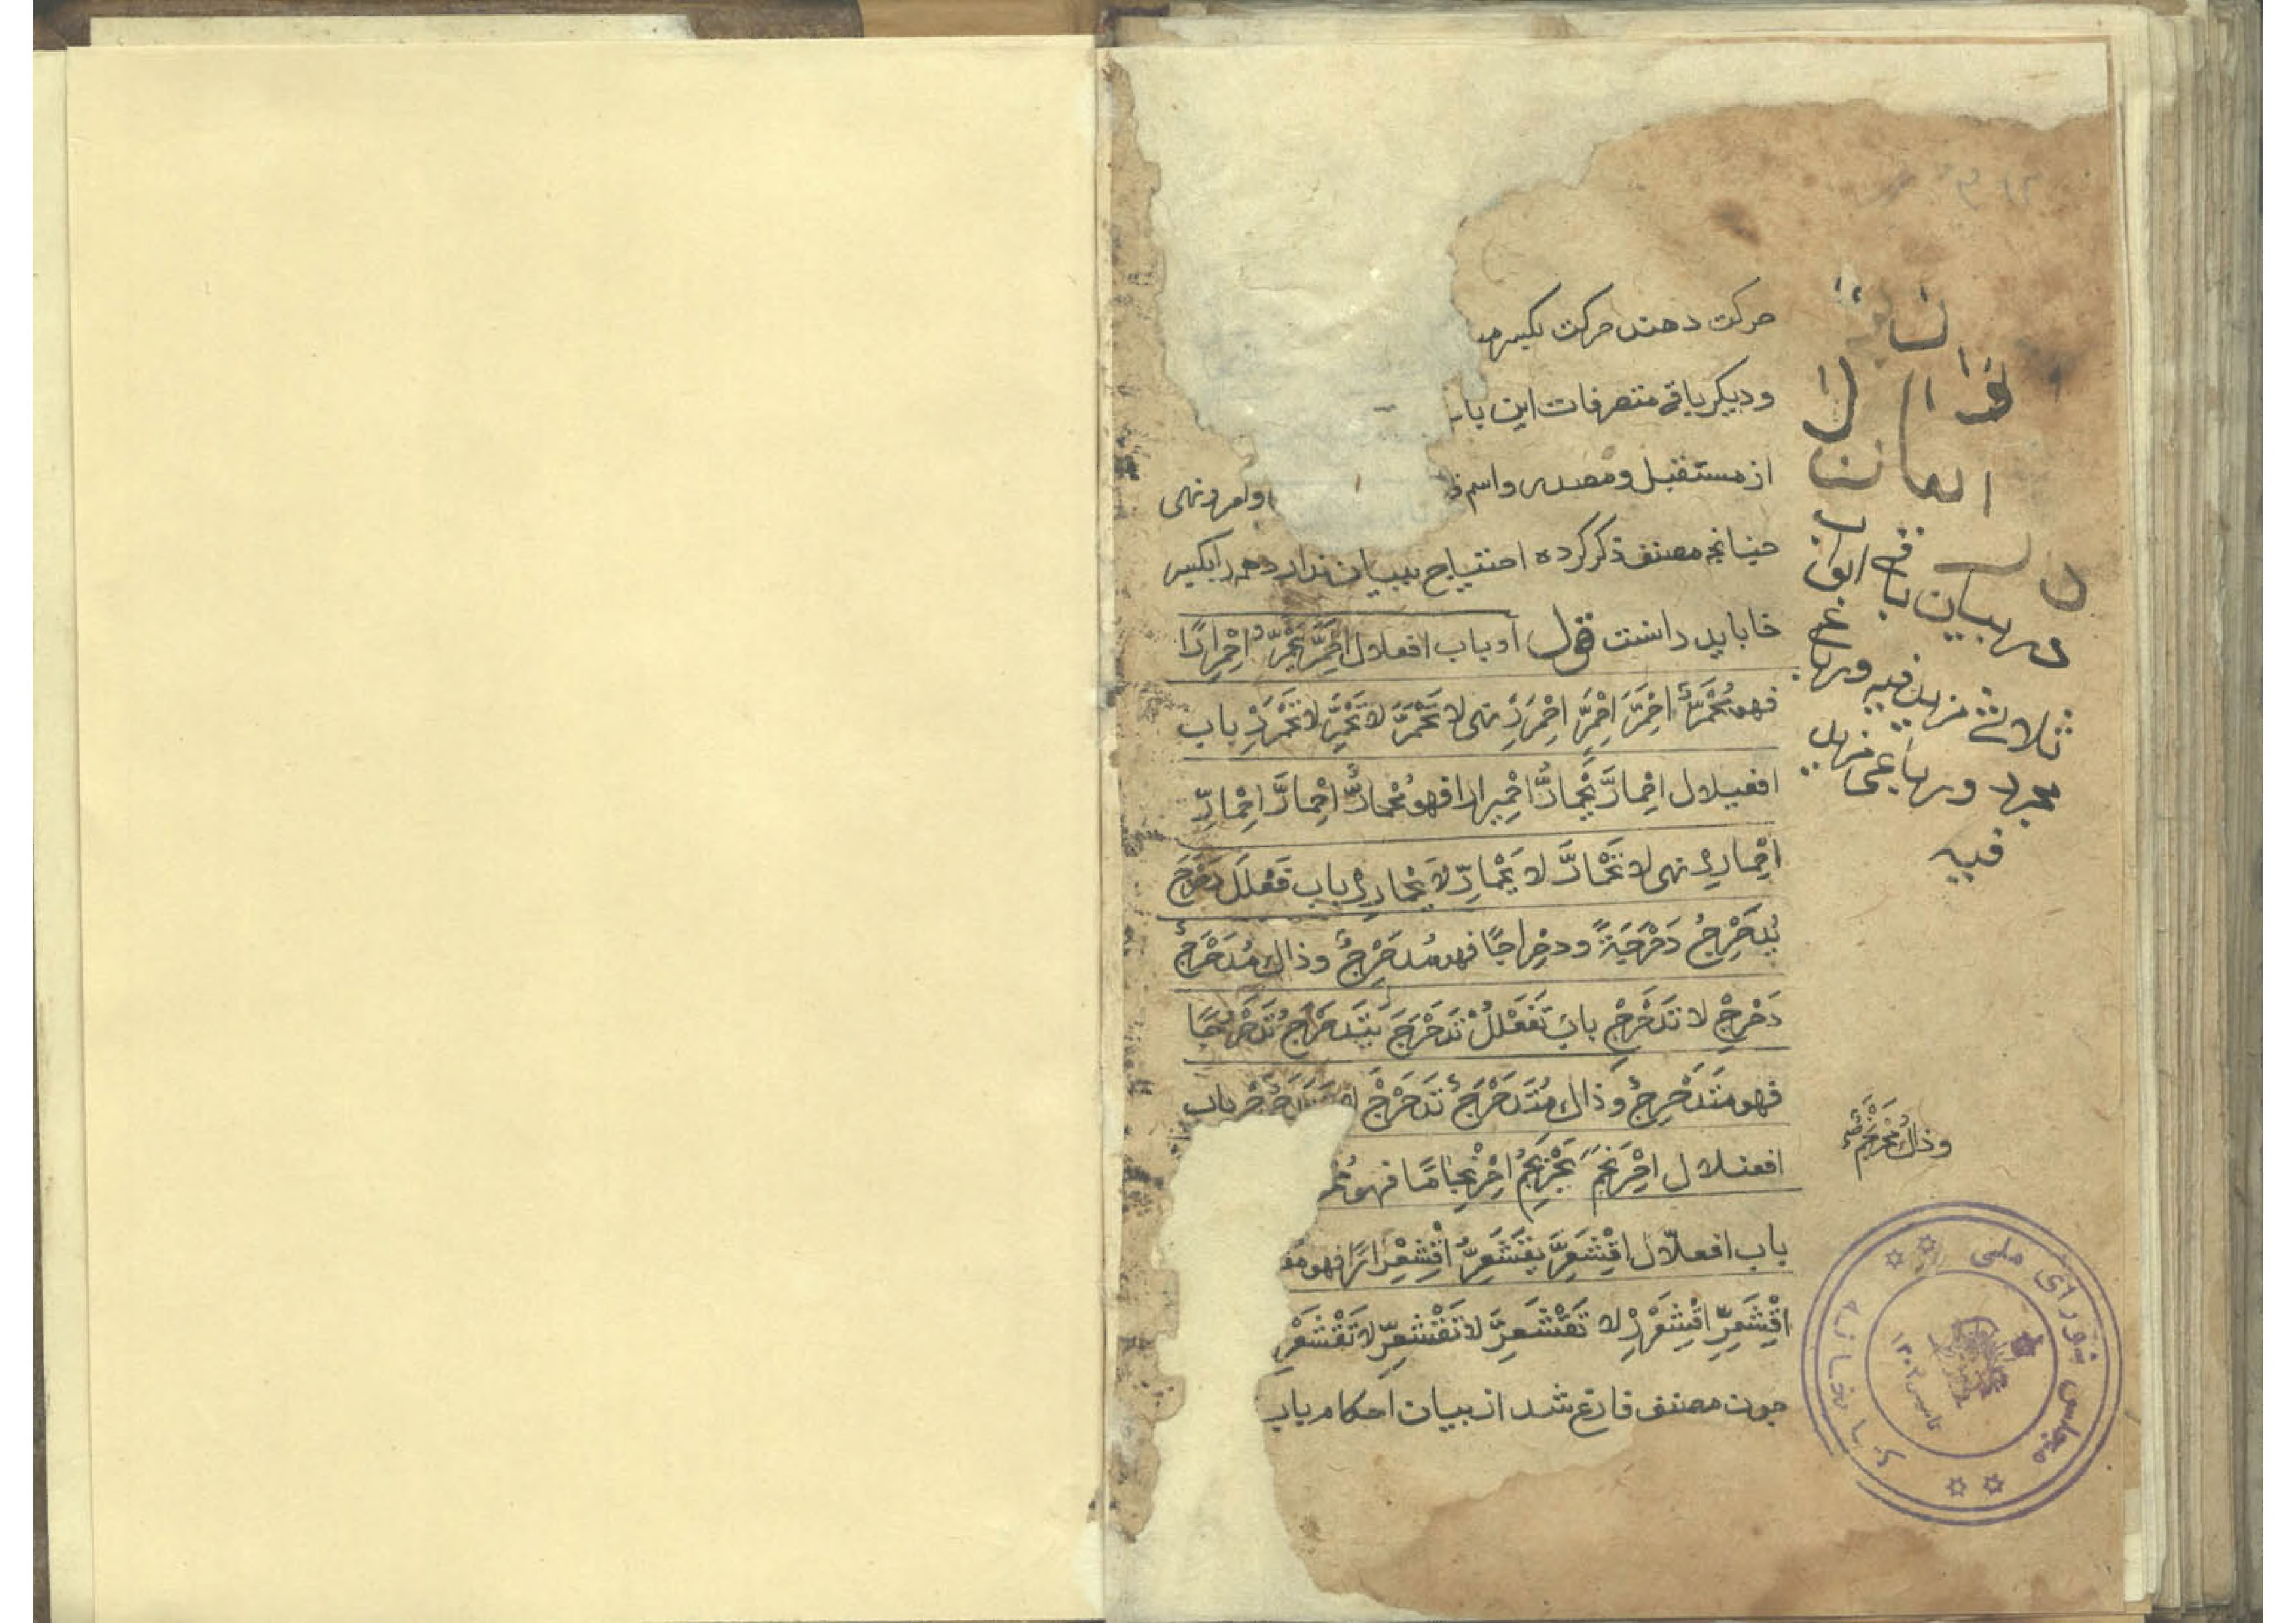 حرکت دهند حرکت بکسر
و دیگر باقی متصرفات این باب
از مستقبل و مصدر و اسم
و امر و نهی
چنانچه مصنف ذکر کرده احتیاج ببیان ندارد
خا باید داشت قوله او باب افعلال اِحْمَرَّ یَحْمَرُّ اِحْمِرارًا
فهو مُحْمَرٌّ اِحْمَرَّ اِحْمَرِّ اِحْمَرِرْ نهی لا تَحْمَرَّ لا تَحْمَرِّ لا تَحْمَرِرْ باب
افعیلال اِحْمارَّ یَحْمارُّ اِحْمیرارا فهو مُحْمارٌّ اِحْمارَّ اِحْمارِّ
اِحْمارِرْ نهی لا تَحْمارَّ لا تَحْمارِّ لا تَحْمارِرْ باب فَعْلَلَ دَحْرَجَ
یُدَحْرِجُ دَحْرَجَةً و دِحْراجًا فهو مُدَحْرِجٌ و ذاك مُدَحْرَجٌ
دَحْرِجْ لا تُدَحْرِجْ باب تَفَعْلُلْ تَدَحْرَجَ یَتَدَحْرَجُ تَدَحْرُجًا
فهو مُتَدَحْرِجٌ وَ ذاك مُتَدَحْرَجٌ تَدَحْرَجْ لا تَتَدَحْرَجْ باب
افعنلال اِحْرَنْجَمَ یَحْرَنْجِمُ اِحْرِنْجامًا فهو
باب افعلّال اِقْشَعَرَّ یَقْشَعِرُّ اِقْشِعْرارًا فهو
اِقْشَعِرِّ اِقْشَعْرِرْ لا تَقْشَعِرَّ لا تَقْشَعِرِّ لا تَقْشَعْرِ
چون مصنف فارغ شد از بیان احکام باب
در بیان باقی ابواب
ثلاثی مزید فیه و رباعی
مجرد و رباعی مزید
فیه
و ذاك مُحْرَنْجَمٌ
کتابخانه مجلس شورای ملی
تاسیس ۱۳۰۲